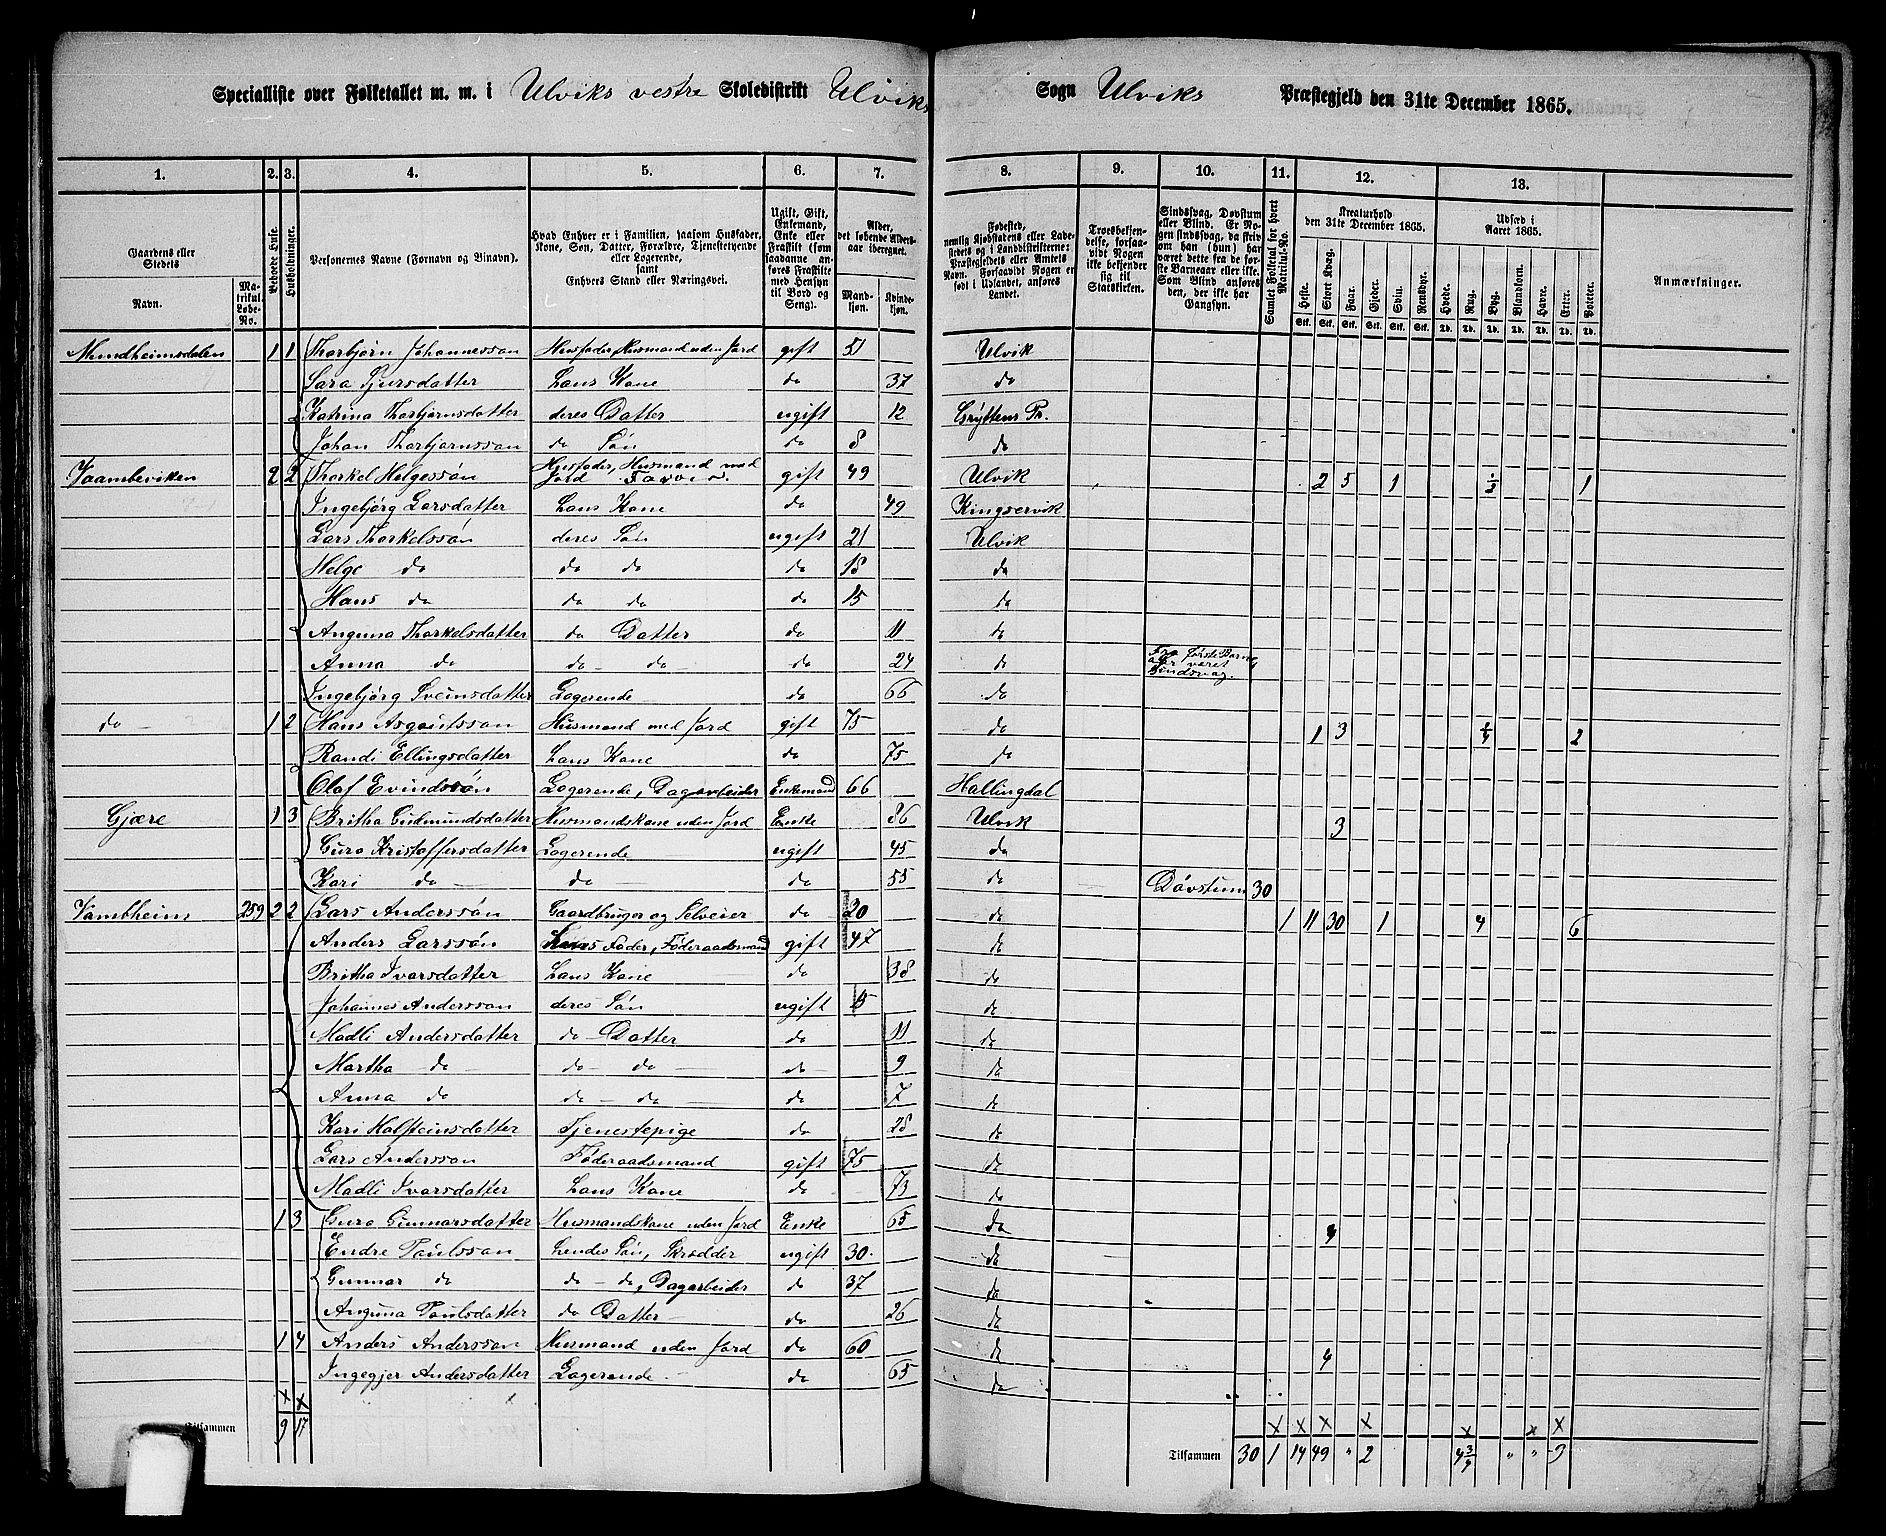 Specialliste over Folketallet m. m. i Ulviks vestre Skoledistrikt Ulviks Sogn Ulviks Præstegjeld den 31te December 1865.
1. 2. 3. 4. 5. 6. 7. 8. 9. 10. 11. 12. 13.
Gaardens eller Stedets
Navn.
Matrikul Løbe-No.
Beboede Huse.
Husholdninger.
Personernes Navne (Fornavn og Binavn).
Hvad Enhver er i Familien, saasom Husfader, Kone, Søn, Datter, Forældre, Tjenestetyende eller Logerende, samt Enhvers Stand eller Næringsvei.
Ugift, Gift, Enkemand, Enke eller Fraskilt (som saadanne anføres Fraskilte med Hensyn til Bord og Seng).
Alder, det løbende Alders-aar iberegnet.
Mandkjøn. Kvindekjøn.
Fødested, nemlig Kjøbstadens eller Ladestedets og i Landdistrikterne: Præstegjeldets eller Amtets Navn. Forsaavidt Nogen er født i Udlandet, anføres Landet.
Troesbekjendelse, forsaavidt Nogen ikke bekjender sig til Statskirken.
Sindssvag, Døvstum eller Blind. Er Nogen sindssvag, da skriv om han (hun) har været dette fra de første Barneaar eller ikke. Som Blind anføres den, der ikke har Gangsyn.
Samlet Folketal for hvert Matrikul-No.
Kreaturhold den 31te December 1865.
Heste. Stort Kvæg. Faar. Gjeder. Svin. Rensdyr.
Udsæd i Aaret 1865.
Hvede. Rug. Byg. Blandkorn. Havre. Erter. Poteter.
Anmærkninger.
Mundheimsdalen 1 1 Thorbjörn Johannesson Husfader, Husmand uden Jord gift 51 Ulvik
Sara Sjursdatter Hans Kone do 37 do
Katrina Thorbjørnsdatter deres Datter ugift 12 Gryttens Pr.
Johan Thorbjørnsson do Søn do 8 do
Vaambeviken 2 2 Thorkel Helgessön Husfader, Husmand med Jord gift 49 Ulvik 2 5 1 ½ 1
Ingebjörg Larsdatter Hans Kone do 49 Kingservik
Lars Thorkelssön deres Søn ugift 21 Ulvik
Helge do do do do 18 do
Hans do do do do 15 do
Anguna Thorkelsdatter do Datter do 11 do
Anna do do do do 24 do Fra første Barneaar været Sindsvag.
Ingebjörg Sveinsdatter Logerende do 66 do
do 1 2 Hans Asgautsson Husmand med Jord gift 75 do 1 3 ¼ 2
Randi Ellingsdatter Hans Kone do 75 do
Olaf Evindssön Logerende, Dagarbeider Enkemand 66 Hallingdal
Gjære 1 3 Britha Gudmundsdatter Husmandskone uden Jord Enke 86 Ulvik 3
Guro Kristoffersdatter Logerende ugift 45 do
Kari do do do 55 do Døvstum 30
Vambheim 259 2 2 Lars Anderssön Gaardbruger og Selveier do 20 do 1 11 30 1 4 6
Anders Larssön Hans Fader, Føderaadsmand gift 47 do
Britha Ivarsdatter Hans Kone do 38 do
Johannes Andersson deres Søn ugift 15 do
Madli Andersdatter do Datter do 11 do
Martha do do do do 9 do
Anna do do do do 7 do
Kari Halsteinsdatter Tjenestepige do 28 do
Lars Andersson Føderaadsmand gift 75 do
Madli Ivarsdatter Hans Kone do 73 do
1 3 Guro Gunnarsdatter Husmandskone uden Jord Enke 65 do 4
Endre Paulsson Hendes Søn, Skrædder ugift 30 do
Gunnar do do do, Dagarbeider do 37 do
Anguna Paulsdatter do Datter do 26 do
1 4 Anders Andersson Husmand uden Jord do 60 do 4
Ingegjer Andersdatter Logerende do 65 do
Tilsammen 9 17 Tilsammen 30 1 14 49 " 2 4¾ " " 9